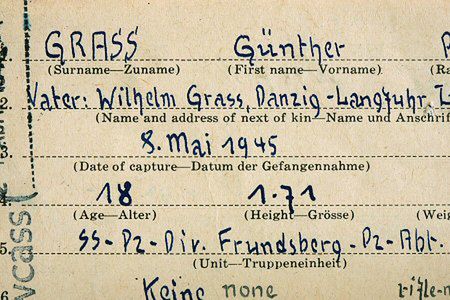 GRASS Günther
(Surname—Zuname) (First name—Vorname) (Ra
2 Vater: Wilhelm Grass, Danzig-Langfuhr,
(Name and address of next of kin—Name und Anschrif
3. 8. Mai 1945
(Date of capture—Datum der Gefangennahme)
4. 18 1.71
(Age—Alter) (Height—Grösse) (Weig
5. SS-Pz-Div. Frundsberg-Pz-Abt.
(Unit—Truppeneinheit)
6 Keine none